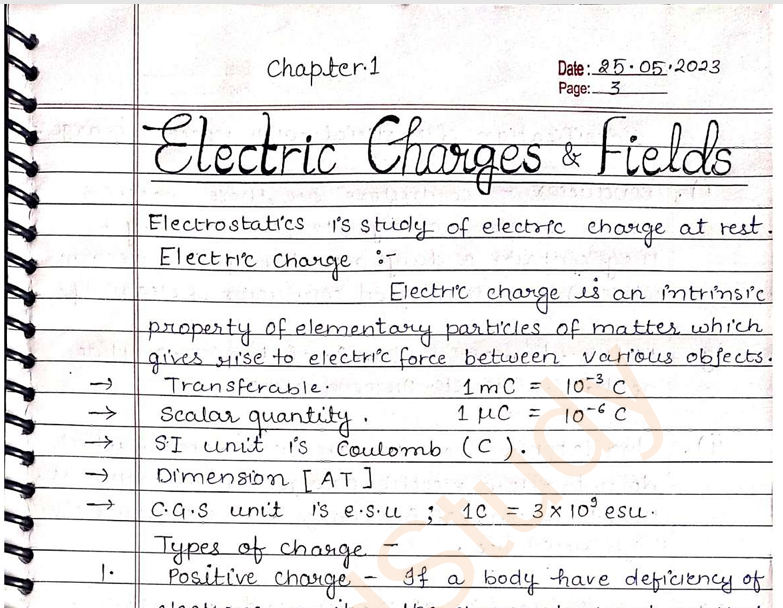 Chapter.1
Date: 25.05.2023
Page: 3
Electric Charges & Fields
Electrostatics is study of electric charge at rest.
Electric charge :-
Electric charge is an intrinsic
property of elementary particles of matter which
gives rise to electric force between various objects.
→ Transferable. 1 mC = 10⁻³ C
→ Scalar quantity. 1 μC = 10⁻⁶ C
→ S.I unit is Coulomb (C).
→ Dimension [AT]
→ C.G.S unit is e.s.u ; 1C = 3 × 10⁹ esu.
Types of charge -
1. Positive charge - If a body have deficiency of
Study